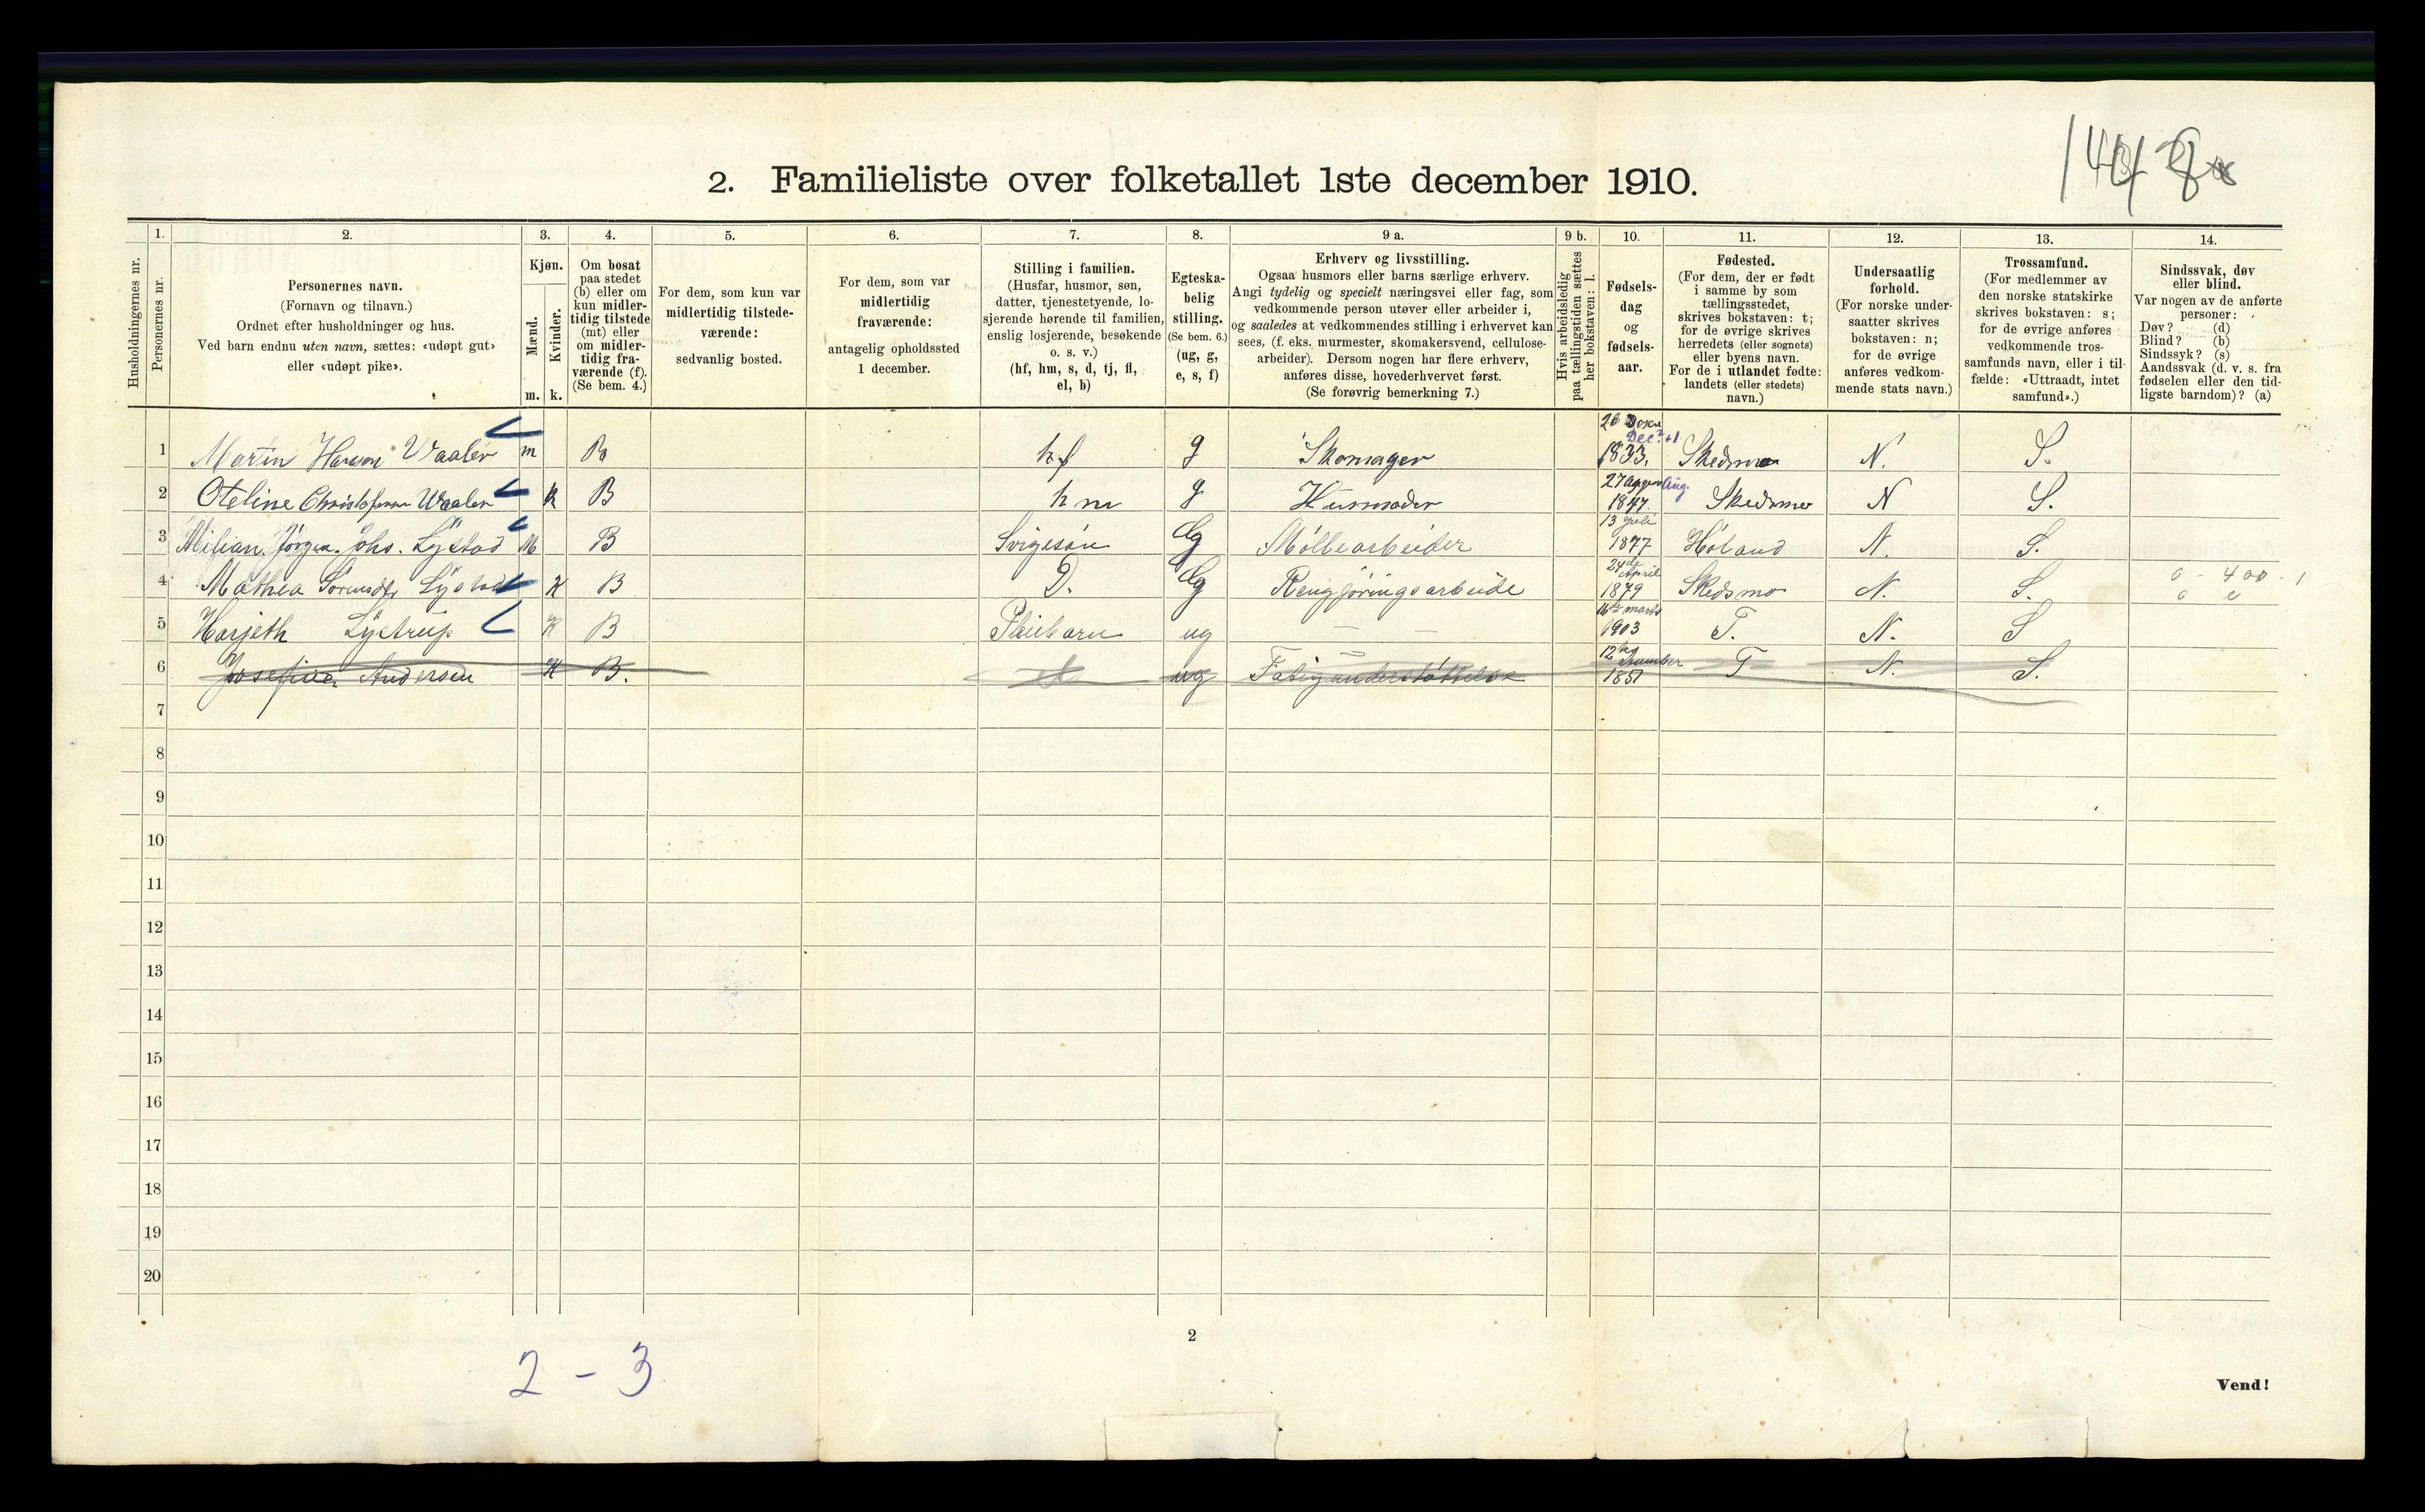 2. Familieliste over folketallet 1ste december 1910.
1.
2.
3.
4.
5.
6.
7.
8.
9 a.
9 b.
10.
11.
12.
13.
14.
Husholdningernes nr.
Personernes nr.
Personernes navn.
(Fornavn og tilnavn.)
Ordnet efter husholdninger og hus.
Ved barn endnu uten navn, sættes: «udøpt gut»
eller «udøpt pike».
Kjøn.
Mænd.
Kvinder.
m. k.
Om bosat
paa stedet
(b) eller om
kun midler-
tidig tilstede
(mt) eller
om midler-
tidig fra-
værende (f).
(Se bem. 4.)
For dem, som kun var
midlertidig tilstede-
værende:
sedvanlig bosted.
For dem, som var
midlertidig
fraværende:
antagelig opholdssted
1 december.
Stilling i familien.
(Husfar, husmor, søn,
datter, tjenestetyende, lo-
sjerende hørende til familien,
enslig losjerende, besøkende
o. s. v.)
(hf, hm, s, d, tj, fl,
el, b)
Egteska-
belig
stilling.
(Se bem. 6.)
(ug, g,
e, s, f)
Erhverv og livsstilling.
Ogsaa husmors eller barns særlige erhverv.
Angi tydelig og specielt næringsvei eller fag, som
vedkommende person utøver eller arbeider i,
og saaledes at vedkommendes stilling i erhvervet kan
sees, (f. eks. murmester, skomakersvend, cellulose-
arbeider). Dersom nogen har flere erhverv,
anføres disse, hovederhvervet først.
(Se forøvrig bemerkning 7.)
Hvis arbeidsledig
paa tællingstiden sættes
her bokstaven: l.
Fødsels-
dag
og
fødsels-
aar.
Fødested.
(For dem, der er født
i samme by som
tællingsstedet,
skrives bokstaven: t;
for de øvrige skrives
herredets (eller sognets)
eller byens navn.
For de i utlandet fødte:
landets (eller stedets)
navn.)
Undersaatlig
forhold.
(For norske under-
saatter skrives
bokstaven: n;
for de øvrige
anføres vedkom-
mende stats navn.)
Trossamfund.
(For medlemmer av
den norske statskirke
skrives bokstaven: s;
for de øvrige anføres
vedkommende tros-
samfunds navn, eller i til-
fælde: «Uttraadt, intet
samfund».)
Sindssvak, døv
eller blind.
Var nogen av de anførte
personer:
Døv? (d)
Blind? (b)
Sindssyk? (s)
Aandssvak (d. v. s. fra
fødselen eller den tid-
ligste barndom)? (a)
1 Martin Hansen Waaler m B hf g Skomager 26 Dec. 1833. Skedsmo N. S.
2 Oteline Christofersen Waaler k B hm g Husmoder 27 Aug. 1847. Skedsmo N S.
3 Jørgen Johs. Lystad M B Svigesøn g Møllearbeider 13 juli 1877 Høland N. S.
4 Mathea K B D. g Rengjøringsarbeide 24de April 1879 Skedsmo N. S. 0 - 400 - 1
5 Lystrup K B Pleiebarn ug — — 16de marts 1903 T. N. S
6 Josefine Andersen K B. ug Fatigunderstøttelse 12te 1851 T N. S.
7
8
9
10
11
12
13
14
15
16
17
18
19
20
2
2 - 3
Vend!